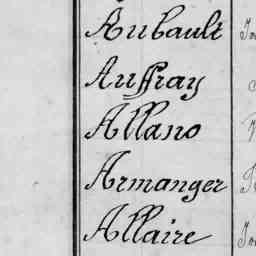 Aubault
Auffray
Allano
Armanger
Allaire